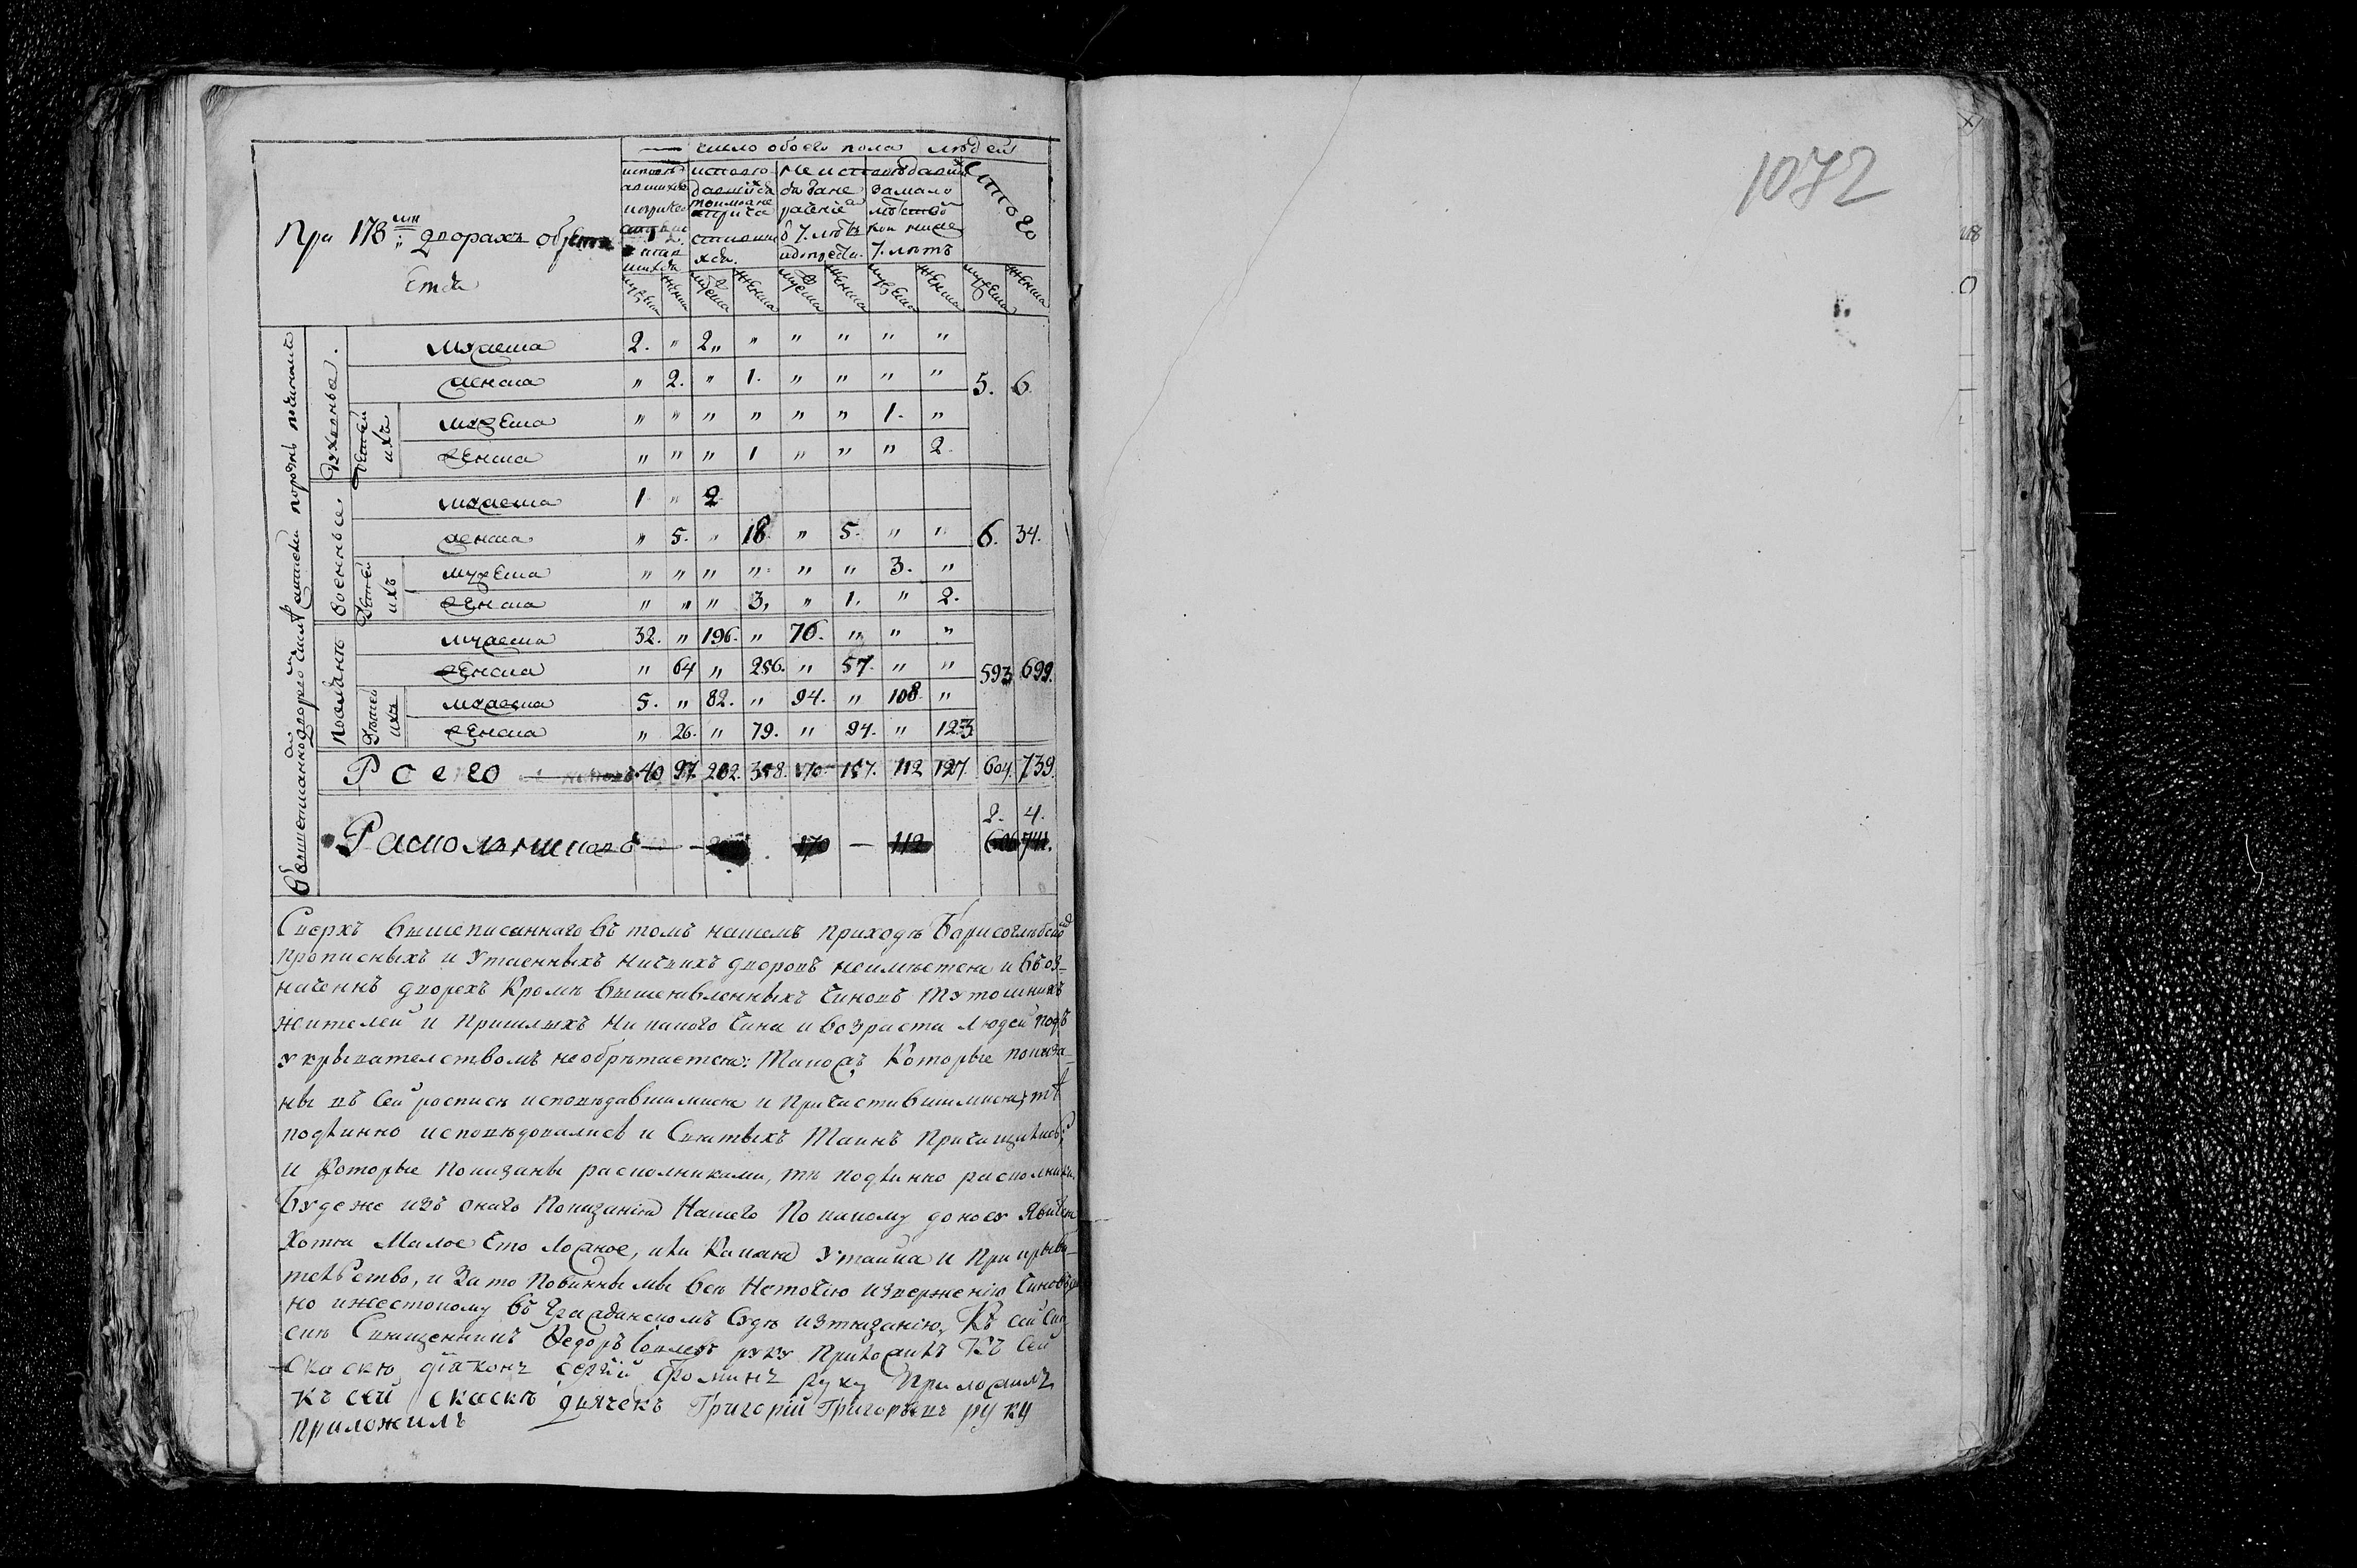 число обоего пола людей
При 178 ми дворахъ обрета
ется
Итого
мужеска женска мужеска женска мужеска женска мужеска женска мужеска женска
Духовныя.
мужеска 2. " 2" " " " " "
женска " 2. " 1. " " " " 5. 6.
Детей ихъ
мужеска " " " " " " 1. "
женска " " " 1 " " " 2.
Военныя.
мужеска 1 " 2
женска " 5. " 18. " 5. " " 6. 34.
Детей ихъ
мужеска " " " " " " 3. "
женска " " " 3, " 1. " 2.
Поселянъ
мужеска 32. " 196. " 76. " " "
женска " 64 " 256. " 57. " " 593 699.
Детей ихъ
мужеска 5. " 82. " 94. " 108. "
женска " 26. " 79. " 94. " 123
Всего 40 97. 282. 358. 170. 157. 112 127. 604. 739.
2. 4.
Раскольниковъ — — 170 — 112 606 741.
Сверхъ вышеписаннаго въ томъ нашемъ приходѣ Борисоглѣбской
прописныхъ и утаенныхъ ничьихъ дворовъ неимѣется и въ оз-
наченнъ дворехъ кромѣ вышеявленныхъ чиновъ тутошнихъ
жителей и пришлыхъ ни какого чина и возраста людей подъ
укрывателствомъ необрѣтается: Такожъ которые показа-
ны въ сей росписи исповѣдавшимися и причастившимися, тѣ
подлинно исповѣдовались и Святыхъ Таинъ причащились,
и которые показаны раскольниками, тѣ подлинно раскольники,
будеже изъ онаго показанія нашего по какому доносу явится
хотя малое что ложное, или какая утайка и прикрыва-
тельство, и за то повинны мы всѣ неточію изверженію чиновъ
но ижестокому въ гражданскомъ судѣ изтязанію, Къ сей
Священникъ Федоръ руку приложилъ Къ сей
скаскѣ діяконъ сергій фоминъ руку приложилъ
къ сей скаскѣ дьячекъ Григорій Григорьевъ руку
приложилъ
1072